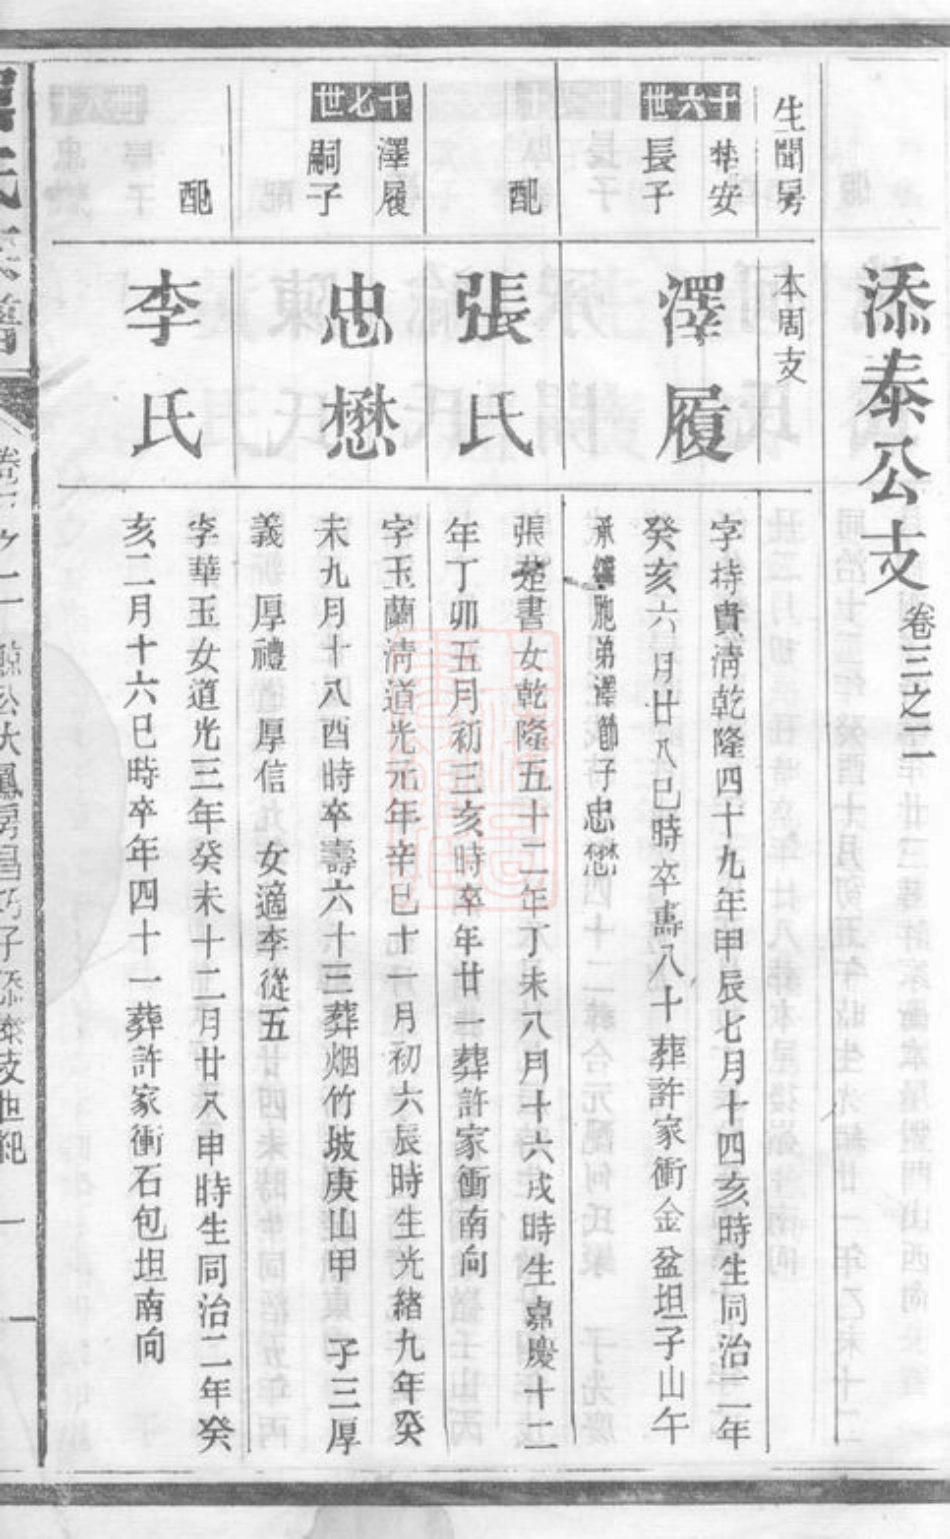 添泰公支 卷三之二
生聞房
本周支
十六世
梓安
長子
澤履
字持貴清乾隆四十九年甲辰七月十四亥時生同治二年
癸亥六月廿八巳時卒壽八十葬許家衝金盆坦子山午
承繼胞弟澤節子忠懋
配
張氏
張楚書女乾隆五十二年丁未八月十六戌時生嘉慶十二
年丁卯五月初三亥時卒年廿一葬許家衝南向
十七世
澤履
嗣子
忠懋
字玉蘭清道光元年辛巳十一月初六辰時生光緒九年癸
未九月十八酉時卒壽六十三葬烟竹坡庚山甲 子三厚
義 厚禮 厚信 女適李從五
配
李氏
李華玉女道光三年癸未十二月廿八申時生同治二年癸
亥二月十六巳時卒年四十一葬許家衝石包坦南向
氏
公大鳳房昌巧子添泰支世紀 一